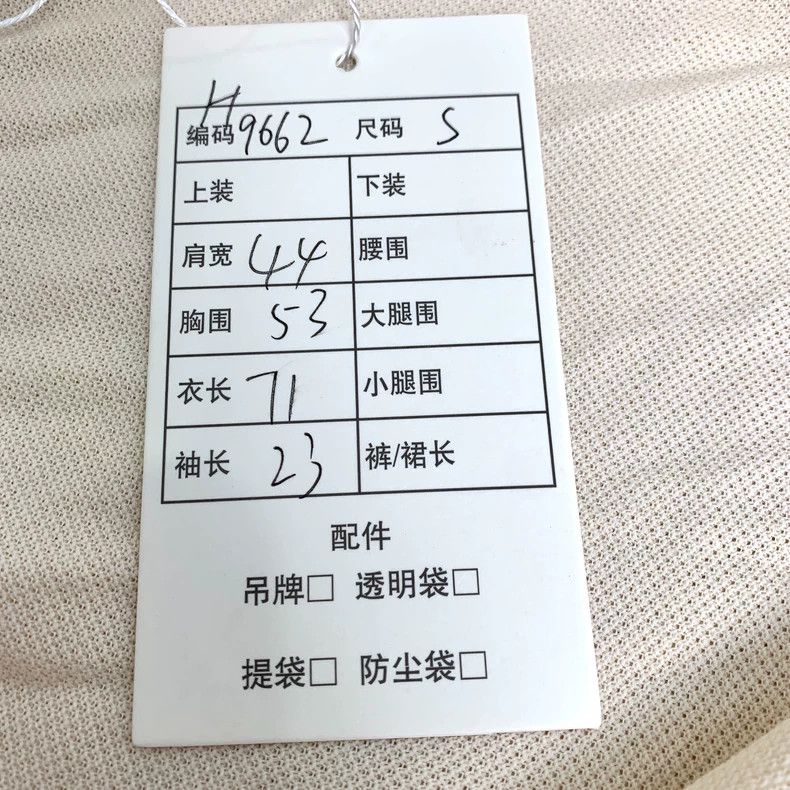 编码 H9662 尺码 S
上装 下装
肩宽 44 腰围
胸围 53 大腿围
衣长 71 小腿围
袖长 23 裤/裙长
配件
吊牌□ 透明袋□
提袋□ 防尘袋□